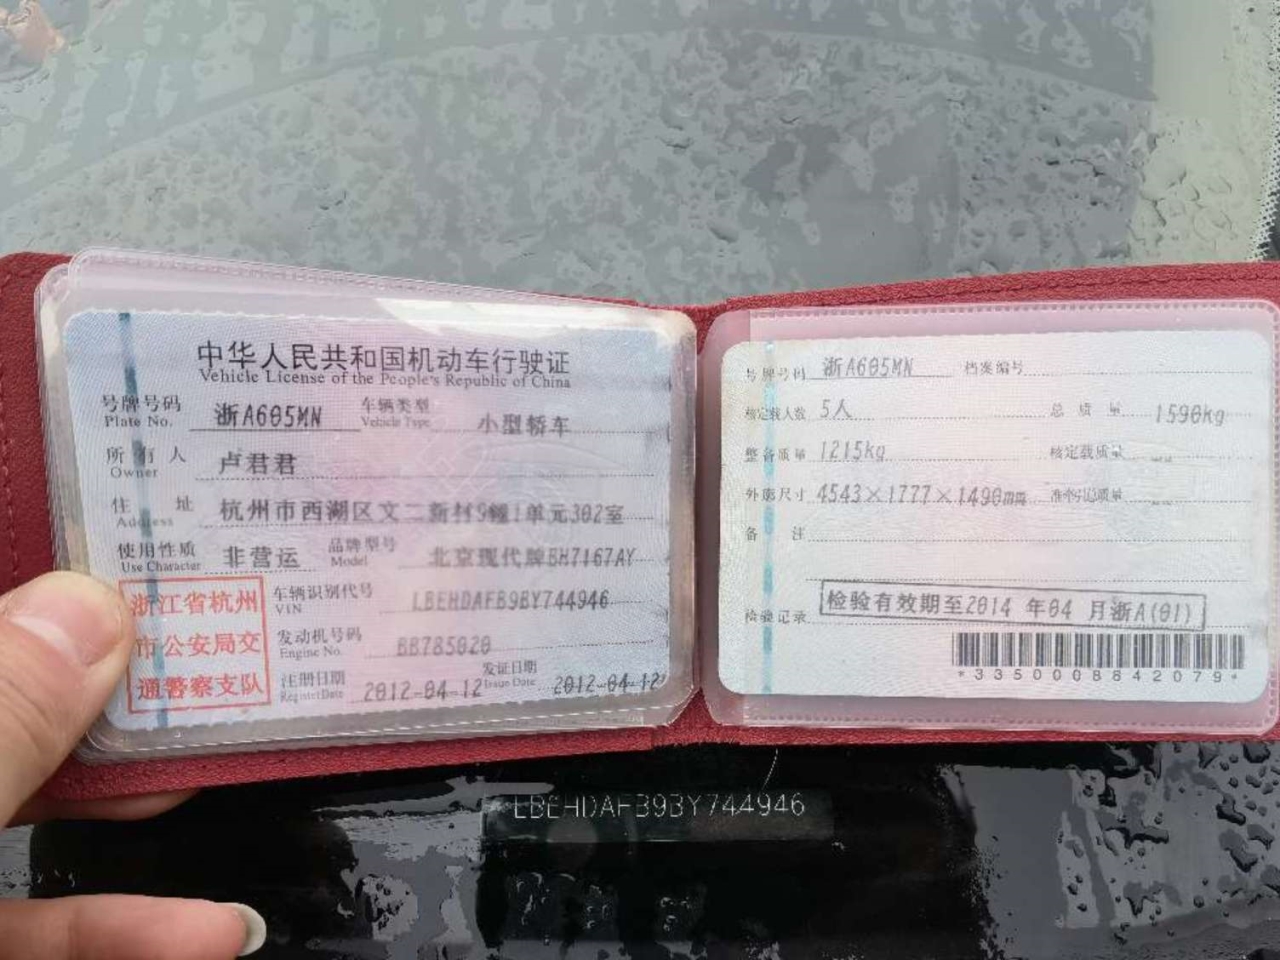 中华人民共和国机动车行驶证
Vehicle License of the People's Republic of China
号牌号码 浙A605MN 车辆类型 小型轿车
Plate No. Vehicle Type
所有人 卢君君
Owner
住址 杭州市西湖区文二新村9幢1单元302室
Address
使用性质 非营运 品牌型号 北京现代牌BH7167AY
Use Character Model
浙江省杭州
市公安局交
通警察支队
车辆识别代号 LBEHDAFB9BY744946
VIN
发动机号码 BB785020
Engine No.
注册日期 2012-04-12 发证日期 2012-04-12
Register Date Issue Date
号牌号码 浙A605MN 档案编号
核定载人数 5人 总质量 1590kg
整备质量 1215kg 核定载质量
外廓尺寸 4543×1777×1490mm 准牵引总质量
备注
检验记录 检验有效期至2014年04月浙A(01)
*3350008842079*
LBEHDAFB9BY744946